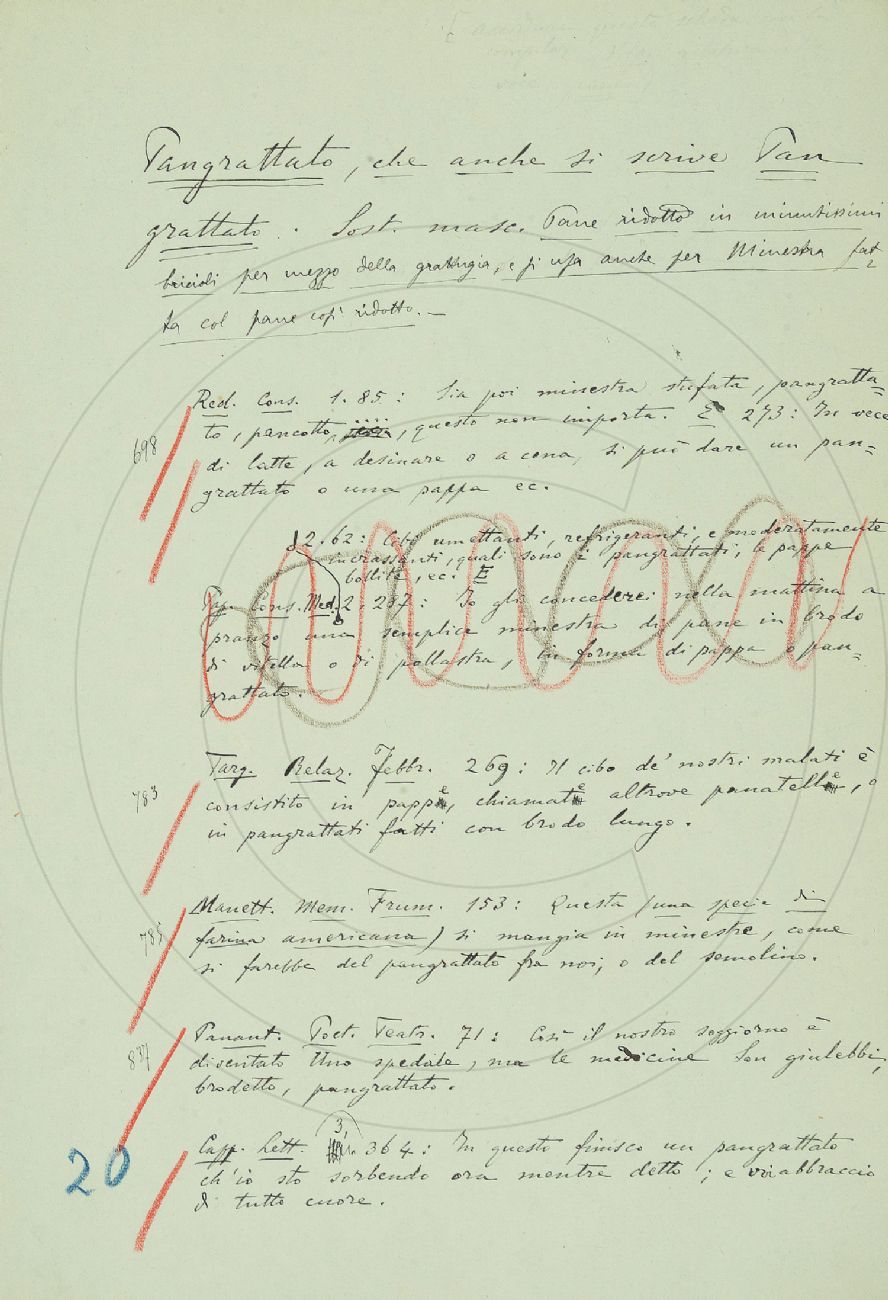 Pangrattato, che anche si scrive Pan
grattato. Sost. masc. Pane ridotto in minutissimi
bricioli per mezzo della grattugia, e si usa anche per Minestra fat-
ta col pane così ridotto.—
Red. Cons. 1. 85: Sia poi minestra stufata, pangratta=
to, pancotto, , questo non importa. E 273: In vece
698
di latte, a desinare o a cena, si può dare un pan=
grattato o una pappa ec.
2. 62: Cibi umettanti, refrigeranti, e moderatamente
incrassanti, quali sono i pangrattati, le pappe
bollite, ec. E
Pap. Cons. Med. 2. 287: Io gli concederei nella mattina a
pranzo una semplice minestra di pane in brodo
di vitella o di pollastra, in forma di pappa o pan=
grattato.
Targ. Relaz. Febbr. 269: Il cibo de' nostri malati è
783
consistito in pappe, chiamate altrove panatelle, o
in pangrattati fatti con brodo lungo.
Manett. Mem. Frum. 153: Questa (una specie di
785
farina americana) si mangia in minestre, come
si farebbe del pangrattato fra noi, o del semolino.
Panant. Poet. Teatr. 71: Così il nostro soggiorno è
837
diventato Uno spedale, ma le medicine Son giulebbi,
brodetto, pangrattato.
Capp. Lett. 3, 364: In questo finisco un pangrattato
20
ch'io sto sorbendo ora mentre detto; e vi abbraccio
di tutto cuore.